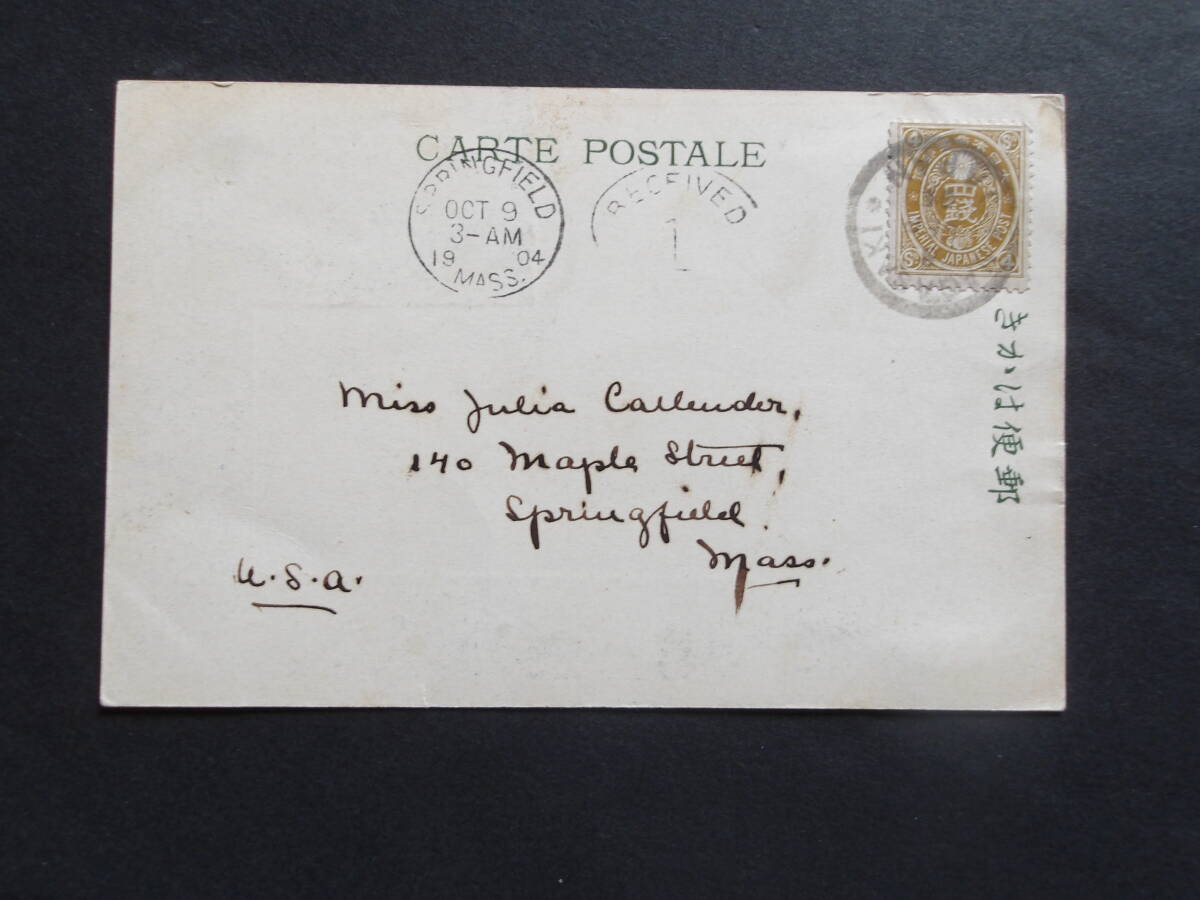 CARTE POSTALE
SPRINGFIELD
OCT 9
3-AM
19 04
MASS.
RECEIVED
1
S 4
四錢
IMPERIAL JAPANESE POST
AKI
郵便はかき
Miss Julia Callender,
140 Maple Street,
Springfield
Mass.
U.S.A.